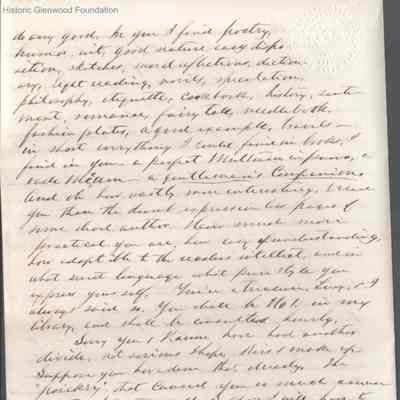 Historic Glenwood Foundation
do any good. In you I find poetry,
humor, wit, good nature easy dispo
sition, sketches, moral reflections, diction
ary, light reading, novels, speculation,
philosophy, etiquette, Cookbook, history, sent
ment, romance, fairy tale, needle book
fashion plates, a good example,
in short everything I could find in books, I
find in you - a perfect in
- a gentleman's Companion
and oh how vastly more interesting
you than the dumb expressionless pages of
some short author. How much more
practical you are, how easy of understanding,
how adaptable to the readers intellect, and in
what sweet language what pure style you
express yourself. You're a treasure, Sug, & I
always said so. You shall be No 1. in my
library, and shall be consulted hourly.
Sorry you & have had another
divide, not serious I hope, & make up
Suppose you have done that already. The
that caused you so much